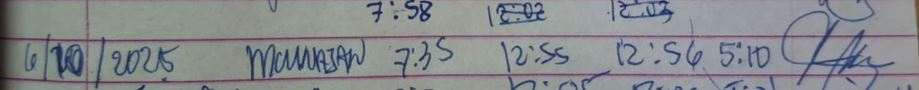 7:58 12:02 12:03
6/10/2025 7:35 12:55 12:56 5:10